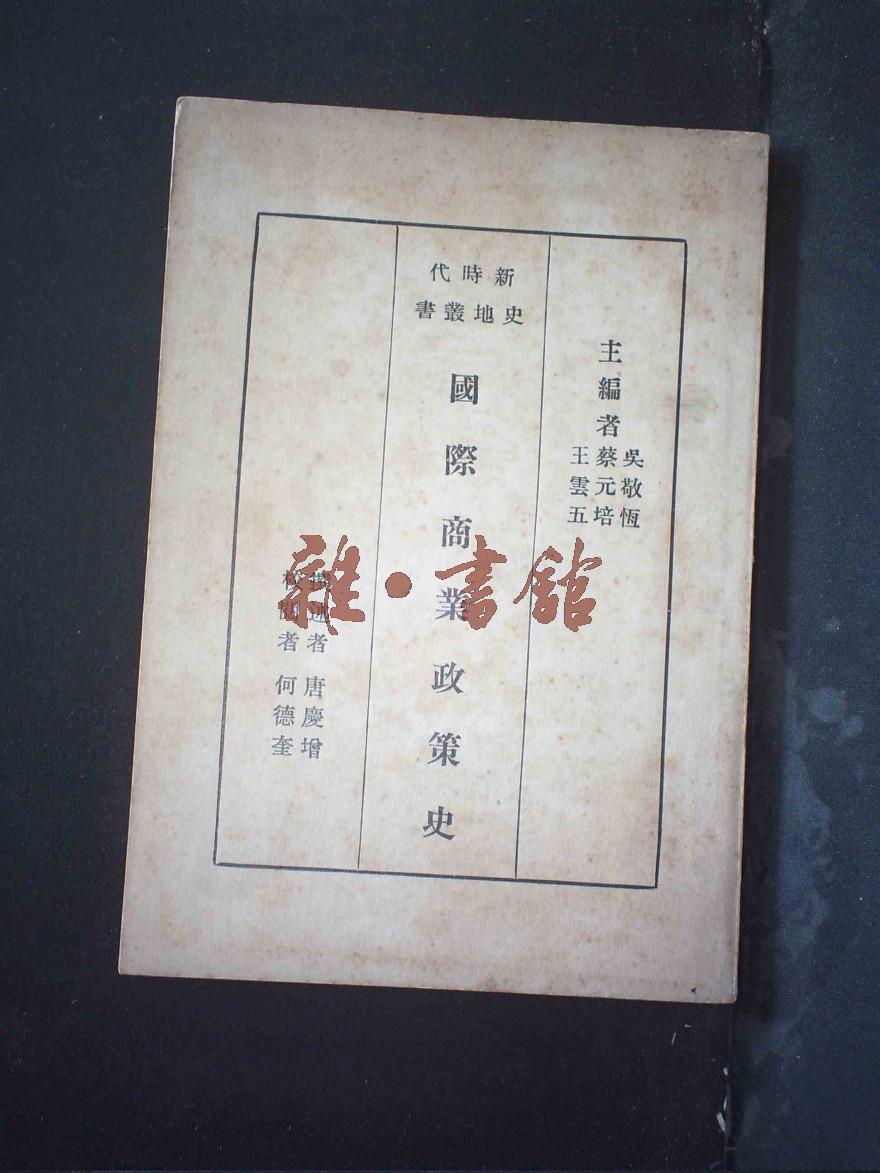 主編者
吳敬恆
蔡元培
王雲五
新時代
史地叢書
國際商業政策史
撰述者 唐慶增
校閱者 何德奎
雜·書館